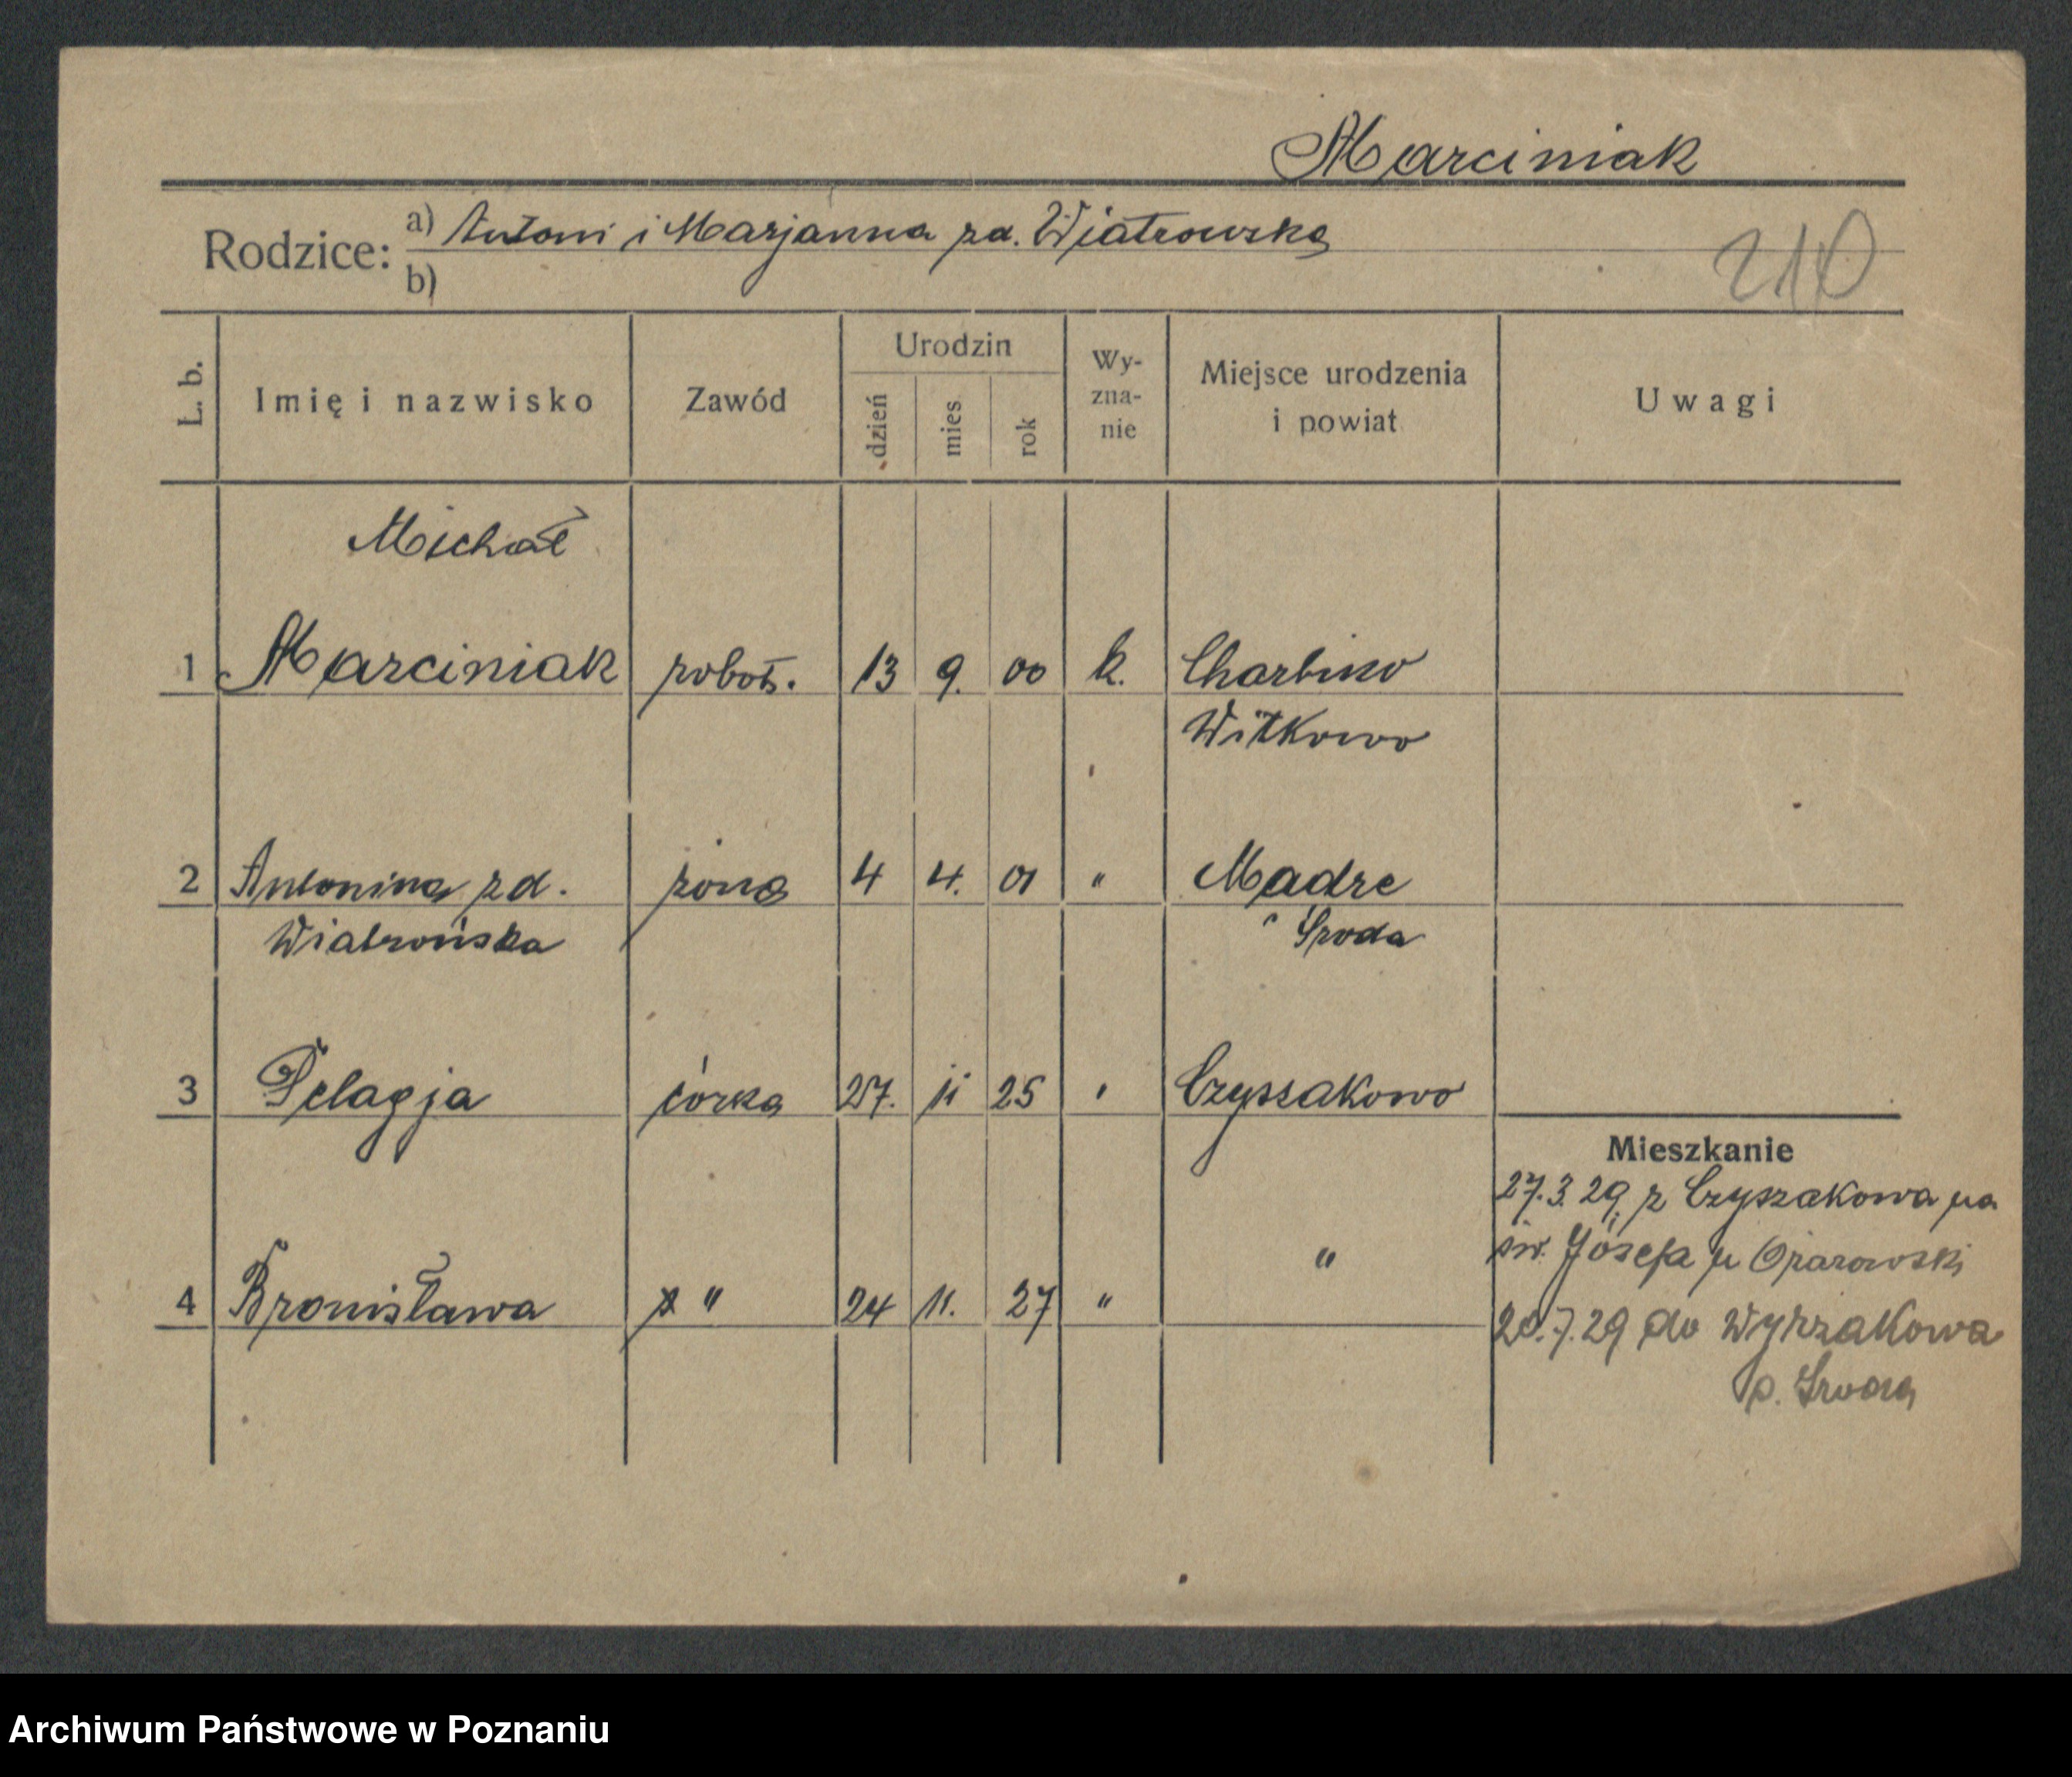 Marciniak
Rodzice: a) Antoni i Marjanna zd. Wiatrowska
b)
210
L. b. Imię i nazwisko Zawód Urodzin dzień mies rok Wy-zna-nie Miejsce urodzenia i powiat Uwagi
Michał
1 Marciniak robot. 13 9. 00 k. Charbino
Witkowo
2 Antonina zd. żona 4 4. 01 " Madre
Wiatrońska Środa
3 Pelagja córka 27. 11 25 " Czyszakowo
Mieszkanie
27.3.29. z Czyszakowa na
św. Józefa u Ożarowski
4 Bronisława " 24 11. 27 " "
20.7.29 do Wyszakowa
p. Środa
Archiwum Państwowe w Poznaniu